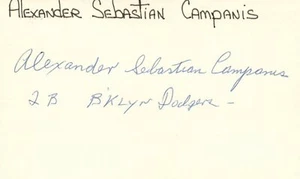 ALEXANDER SEBASTIAN CAMPANIS
Alexander Sebastian Campanis
2B B'KLYN Dodgers -